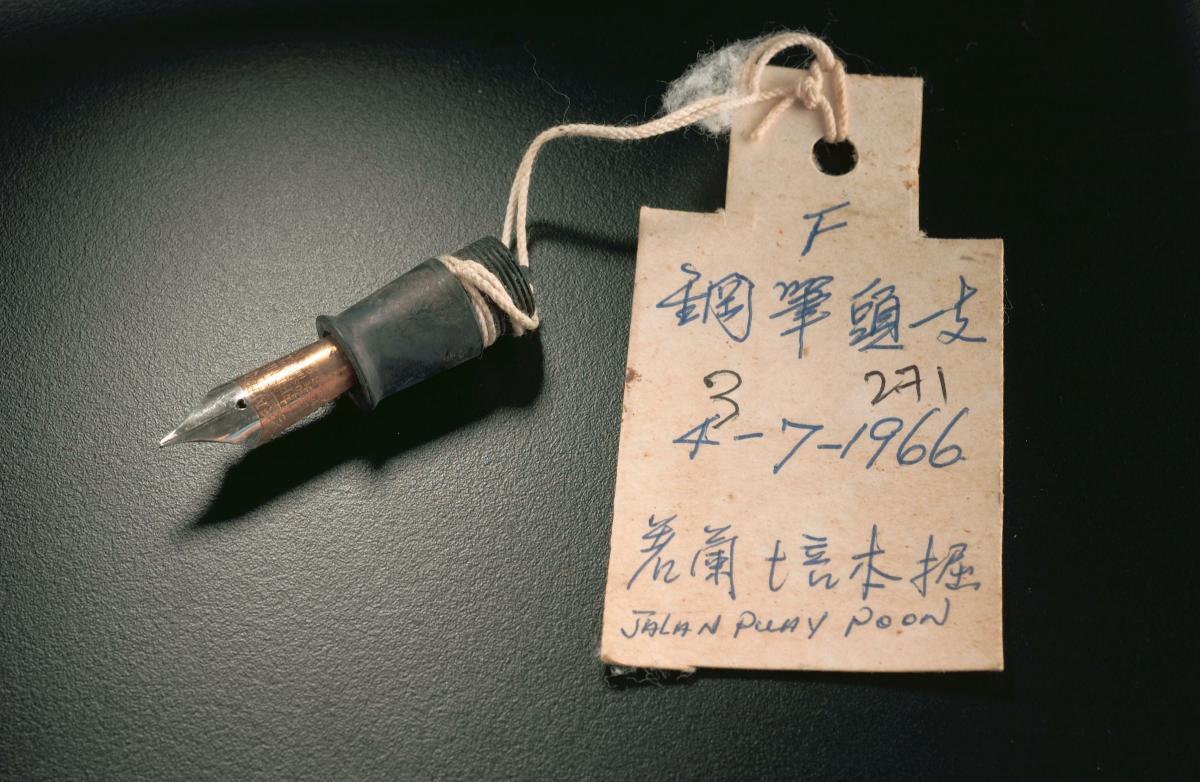 F
鋼筆頭一支
3 271
4-7-1966
若蘭培本掘
JALAN PUAY POON